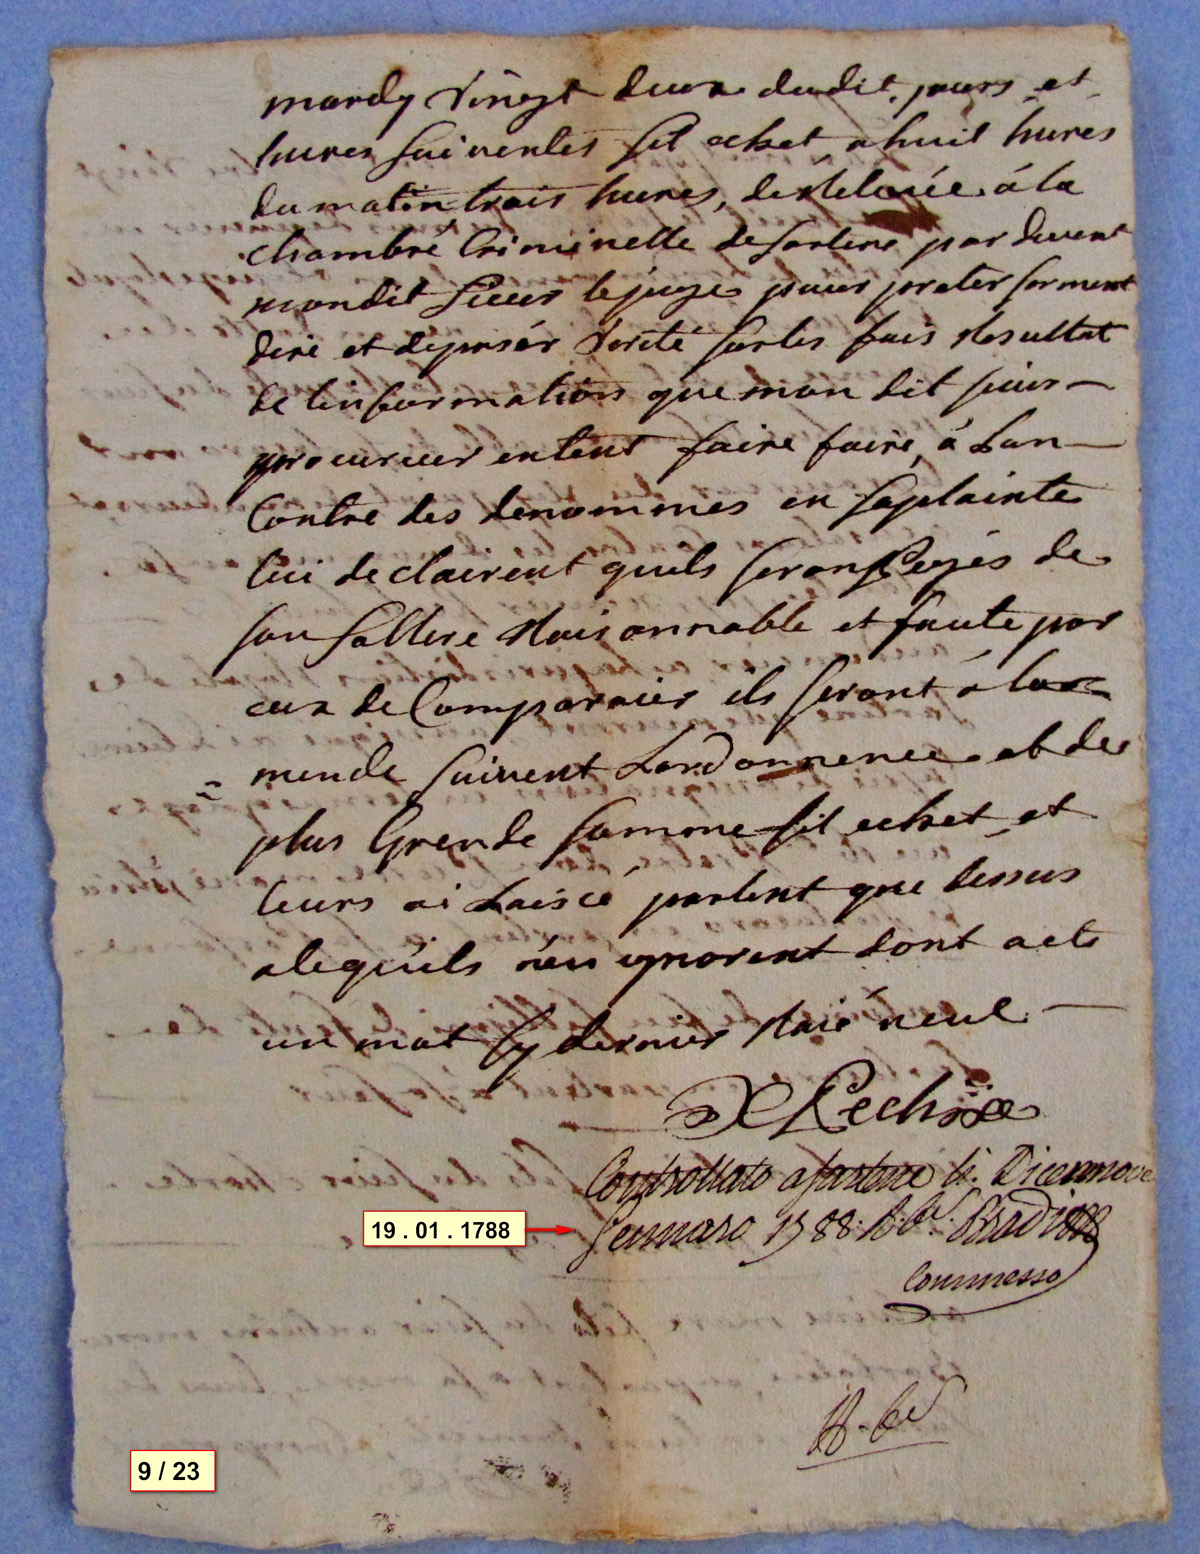 mardy vingt deux dudit, jours et
hures suiventes sil echet a huit hures
du matin trois hures, de relevée à la
chambre Criminelle de Sartene par devent
mondit sieur le juge pour preter serment
dire et deposér verité sur les fais resultat
de linformation que mon dit sieur
procureur entent faire faire, à Lan
Contre des denommes en saplainte
lui declairent quils seront peyés de
son sallere raisonnable et faute par
eux de Comparaier ils seront à la
mende suivent Lordonnence et de
plus Grende somme sil echet et
leurs ai Laissé parlent que dessus
alequils n'en ignorent dont acte
un mot sy dernier raié neul
Controllato a Sartene li Dicennove
Gennaro 1788
Commesso
19 . 01 . 1788
9 / 23